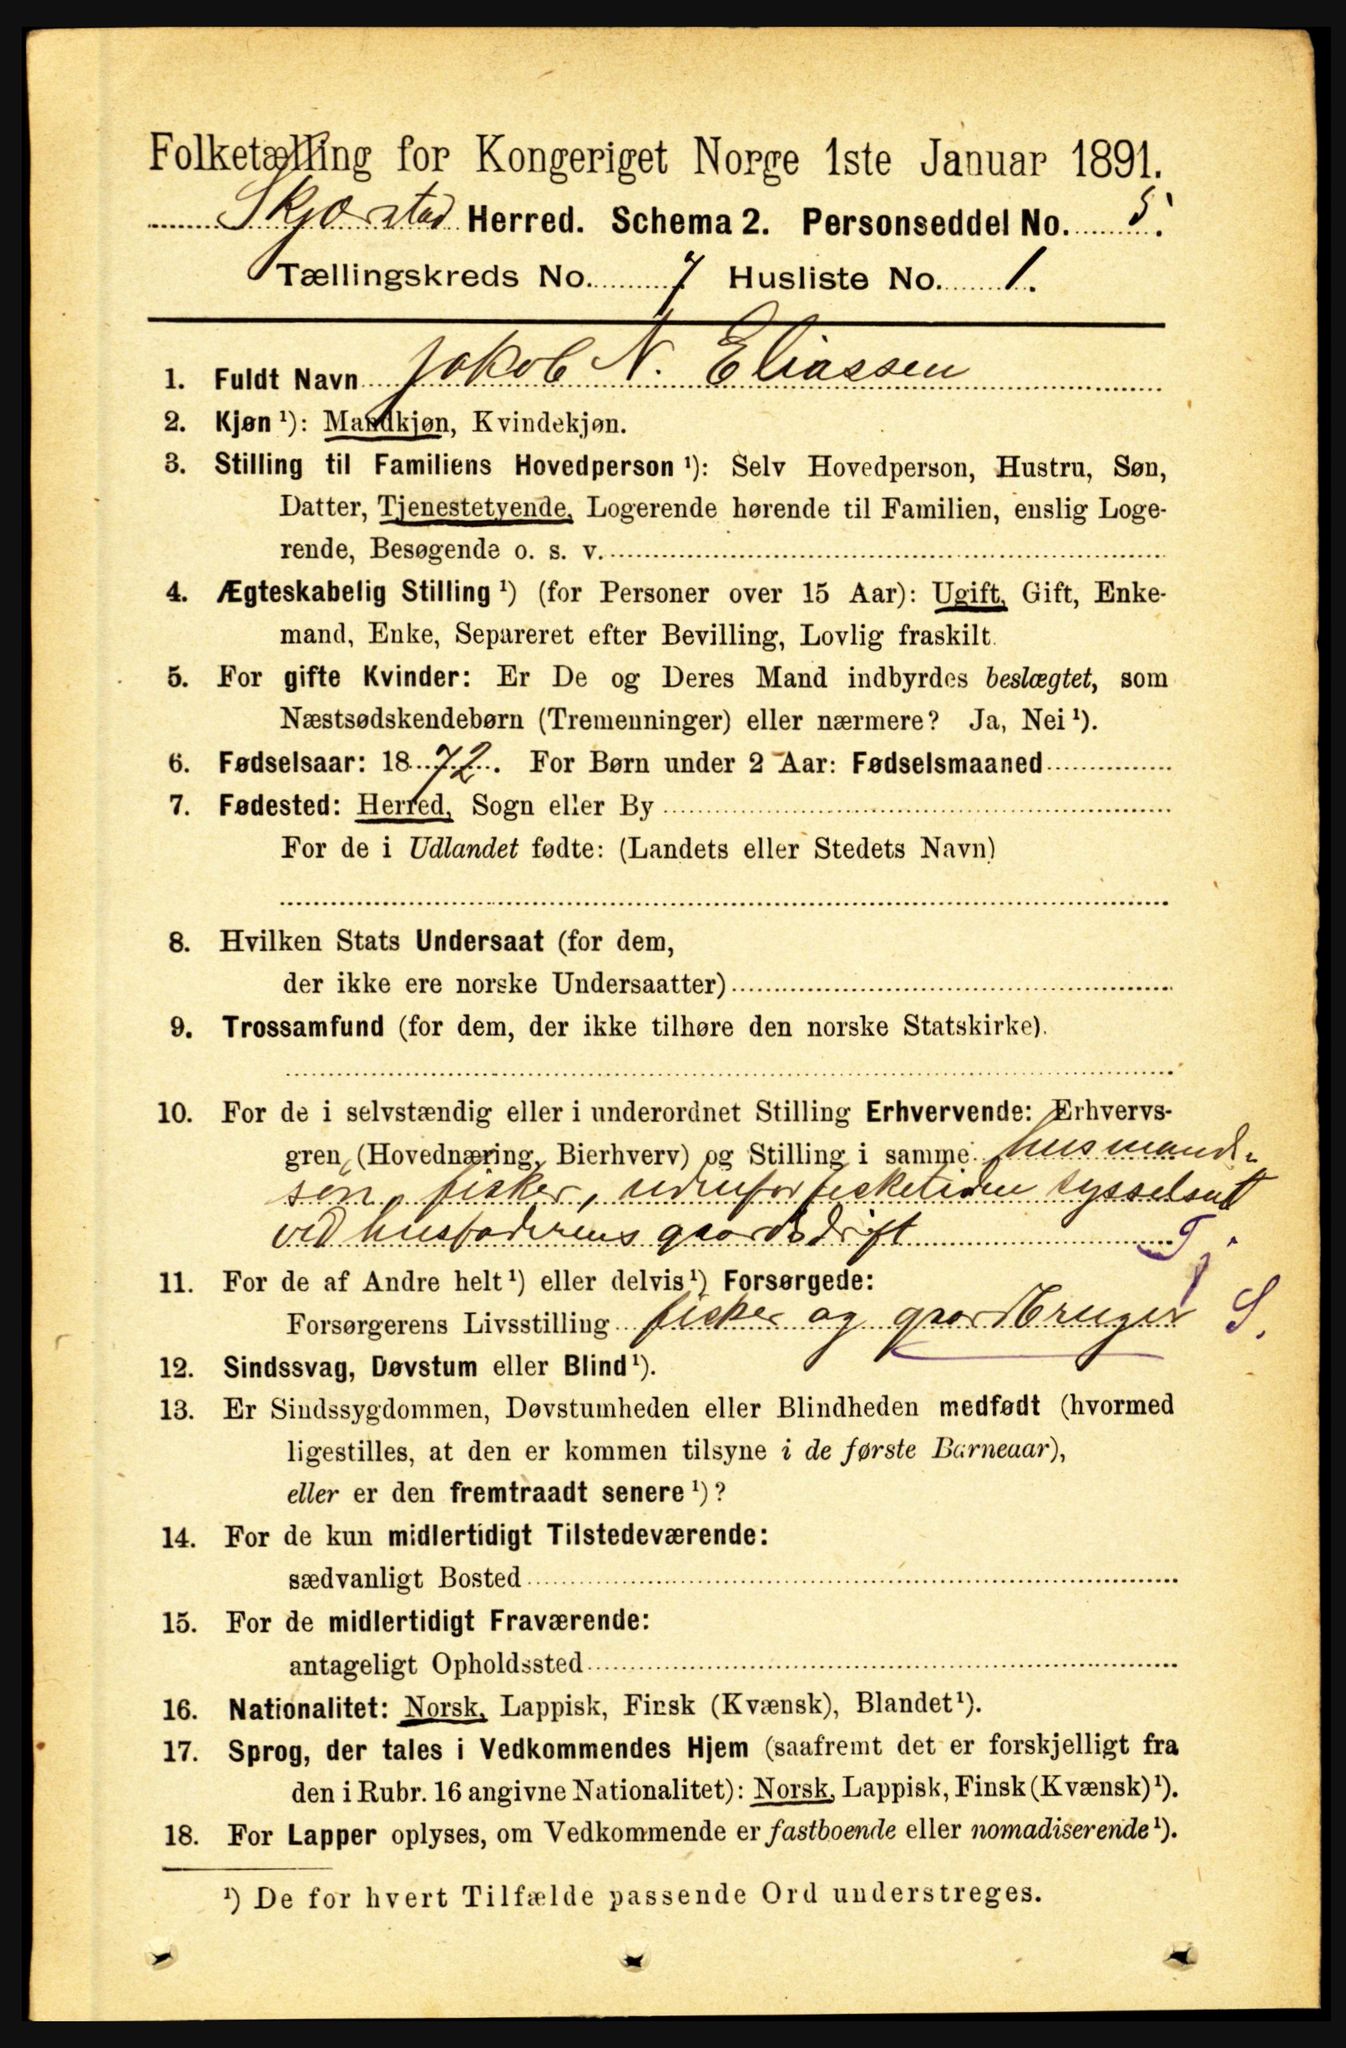 Folketælling for Kongeriget Norge 1ste Januar 1891.
Skjærstad Herred. Schema 2. Personseddel No. 5.
Tællingskreds No. 7 Husliste No. 1.
1. Fuldt Navn Jakob N. Eliassen
2. Kjøn ¹): Mandkjøn, Kvindekjøn.
3. Stilling til Familiens Hovedperson ¹): Selv Hovedperson, Hustru, Søn,
Datter, Tjenestetyende, Logerende hørende til Familien, enslig Loge-
rende, Besøgende o. s. v.
4. Ægteskabelig Stilling ¹) (for Personer over 15 Aar): Ugift, Gift, Enke-
mand, Enke, Separeret efter Bevilling, Lovlig fraskilt.
5. For gifte Kvinder: Er De og Deres Mand indbyrdes beslægtet, som
Næstsødskendebørn (Tremenninger) eller nærmere? Ja, Nei ¹).
6. Fødselsaar: 1872. For Børn under 2 Aar: Fødselsmaaned
7. Fødested: Herred, Sogn eller By
For de i Udlandet fødte: (Landets eller Stedets Navn)
8. Hvilken Stats Undersaat (for dem,
der ikke ere norske Undersaatter)
9. Trossamfund (for dem, der ikke tilhøre den norske Statskirke).
10. For de i selvstændig eller i underordnet Stilling Erhvervende: Erhvervs-
gren (Hovednæring, Bierhverv) og Stilling i samme husmands-
søn, fisker, udenfor fisketiden sysselsatt
ved husfaderens gaardsdrift
Tj.
11. For de af Andre helt ¹) eller delvis ¹) Forsørgede:
Forsørgerens Livsstilling fisker og gaardbruger S.
12. Sindssvag, Døvstum eller Blind ¹).
13. Er Sindssygdommen, Døvstumheden eller Blindheden medfødt (hvormed
ligestilles, at den er kommen tilsyne i de første Barneaar),
eller er den fremtraadt senere ¹)?
14. For de kun midlertidigt Tilstedeværende:
sædvanligt Bosted
15. For de midlertidigt Fraværende:
antageligt Opholdssted
16. Nationalitet: Norsk, Lappisk, Finsk (Kvænsk), Blandet ¹).
17. Sprog, der tales i Vedkommendes Hjem (saafremt det er forskjelligt fra
den i Rubr. 16 angivne Nationalitet): Norsk, Lappisk, Finsk (Kvænsk) ¹).
18. For Lapper oplyses, om Vedkommende er fastboende eller nomadiserende ¹).
¹) De for hvert Tilfælde passende Ord understreges.